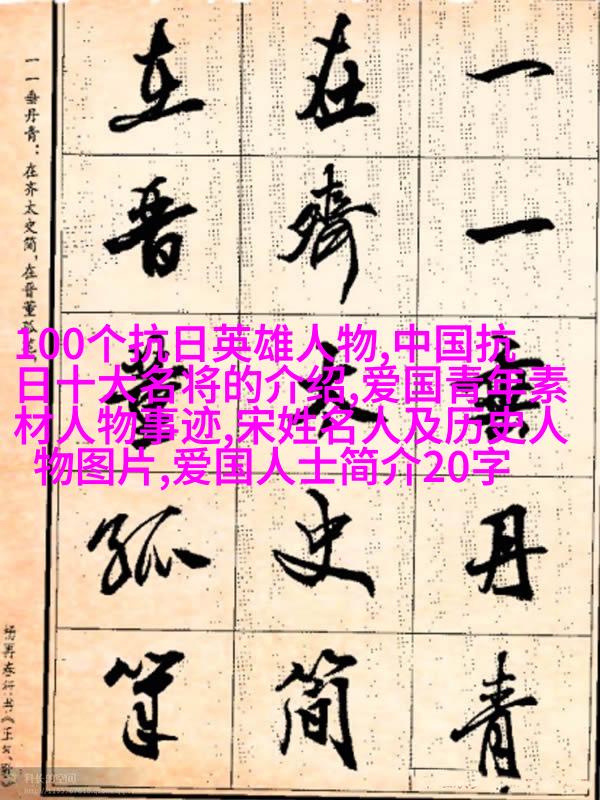 一一垂丹青
在齊太史简
在晋董狐筆
一一垂丹青：在齐太史简，在晋董狐笔，
杨再春行书《正气歌
100个抗日英雄人物,中国抗
日十大名将的介绍,爱国青年素
材人物事迹,宋姓名人及历史人
物图片,爱国人士简介20字
科长的空间